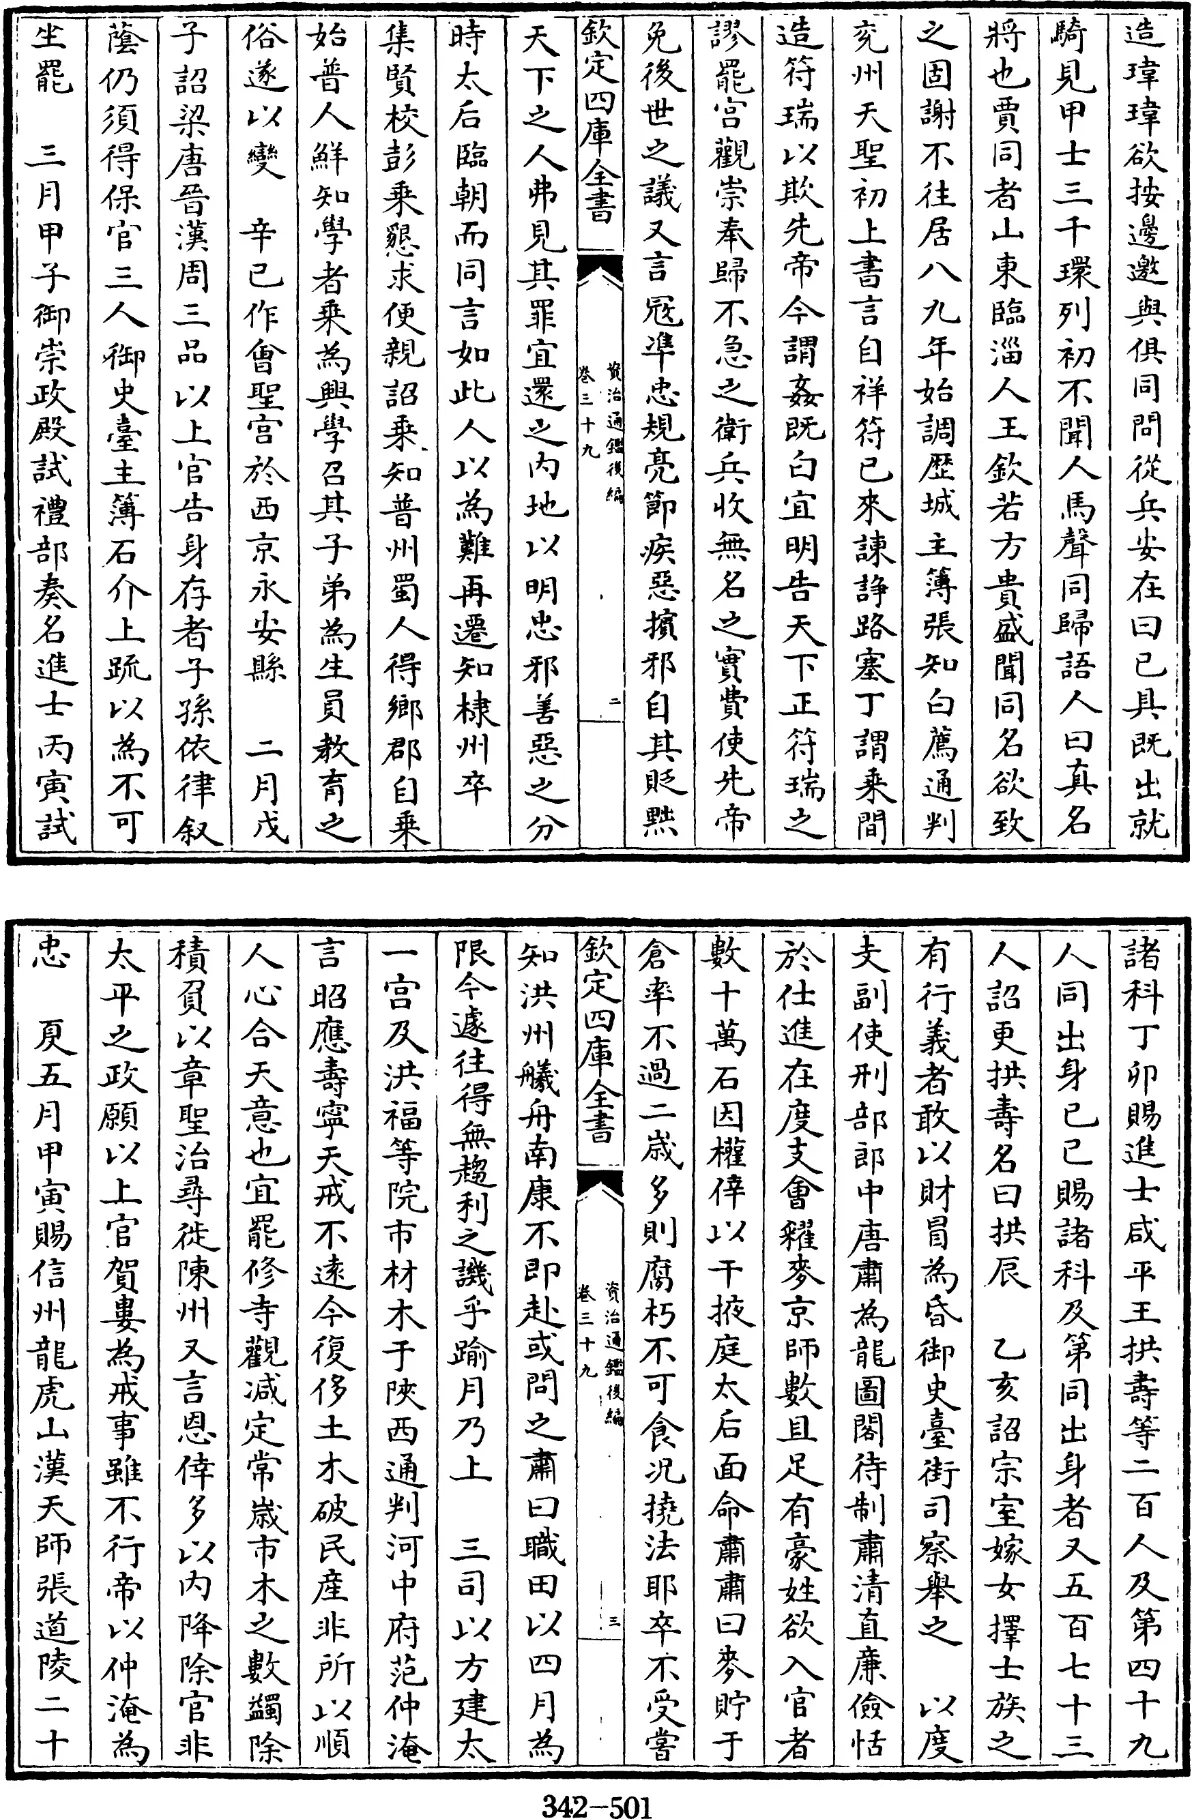 造瑋瑋欲按邊邀與俱同問從兵安在曰已具既出就
騎見甲士三千環列初不聞人馬聲同歸語人曰真名
將也賈同者山東臨淄人王欽若方貴盛聞同名欲致
之固謝不往居八九年始調歷城主簿張知白薦通判
兖州天聖初上書言自祥符已來諫諍路塞丁謂乘間
造符瑞以欺先帝今謂姦既白宜明告天下正符瑞之
謬罷宮觀崇奉歸不急之衛兵收無名之實費使先帝
免後世之議又言冦準忠規亮節疾惡擯邪自其貶黜
欽定四庫全書
資治通鑑後編
卷三十九
二
天下之人弗見其罪宜還之内地以明忠邪善惡之分
時太后臨朝而同言如此人以為難再遷知棣州卒
集賢校彭乘懇求便親詔乘知普州蜀人得鄉郡自乘
始普人鮮知學者乘為興學召其子弟為生員教育之
俗遂以變　辛巳作會聖宮於西京永安縣　二月戊
子詔梁唐晉漢周三品以上官告身存者子孫依律叙
蔭仍須得保官三人御史臺主簿石介上疏以為不可
坐罷　三月甲子御崇政殿試禮部奏名進士丙寅試
諸科丁卯賜進士咸平王拱壽等二百人及第四十九
人同出身已巳賜諸科及第同出身者又五百七十三
人詔更拱壽名曰拱辰　乙亥詔宗室嫁女擇士族之
有行義者敢以財冒為昏御史臺街司察舉之　以度
支副使刑部郎中唐肅為龍圖閣待制肅清直亷儉恬
於仕進在度支會糴麥京師數且足有豪姓欲入官者
數十萬石因權倖以干掖庭太后面命肅肅曰麥貯于
倉率不過二嵗多則腐朽不可食况撓法耶卒不受嘗
欽定四庫全書
資治通鑑後編
卷三十九
三
知洪州艤舟南康不即赴或問之肅曰職田以四月為
限今遽往得無趨利之譏乎踰月乃上　三司以方建太
一宮及洪福等院市材木于陜西通判河中府范仲淹
言昭應壽寧天戒不遠今復侈土木破民產非所以順
人心合天意也宜罷修寺觀減定常嵗市木之數蠲除
積負以章聖治尋徙陳州又言恩倖多以内降除官非
太平之政願以上官賀婁為戒事雖不行帝以仲淹為
忠　夏五月甲寅賜信州龍虎山漢天師張道陵二十
342-501